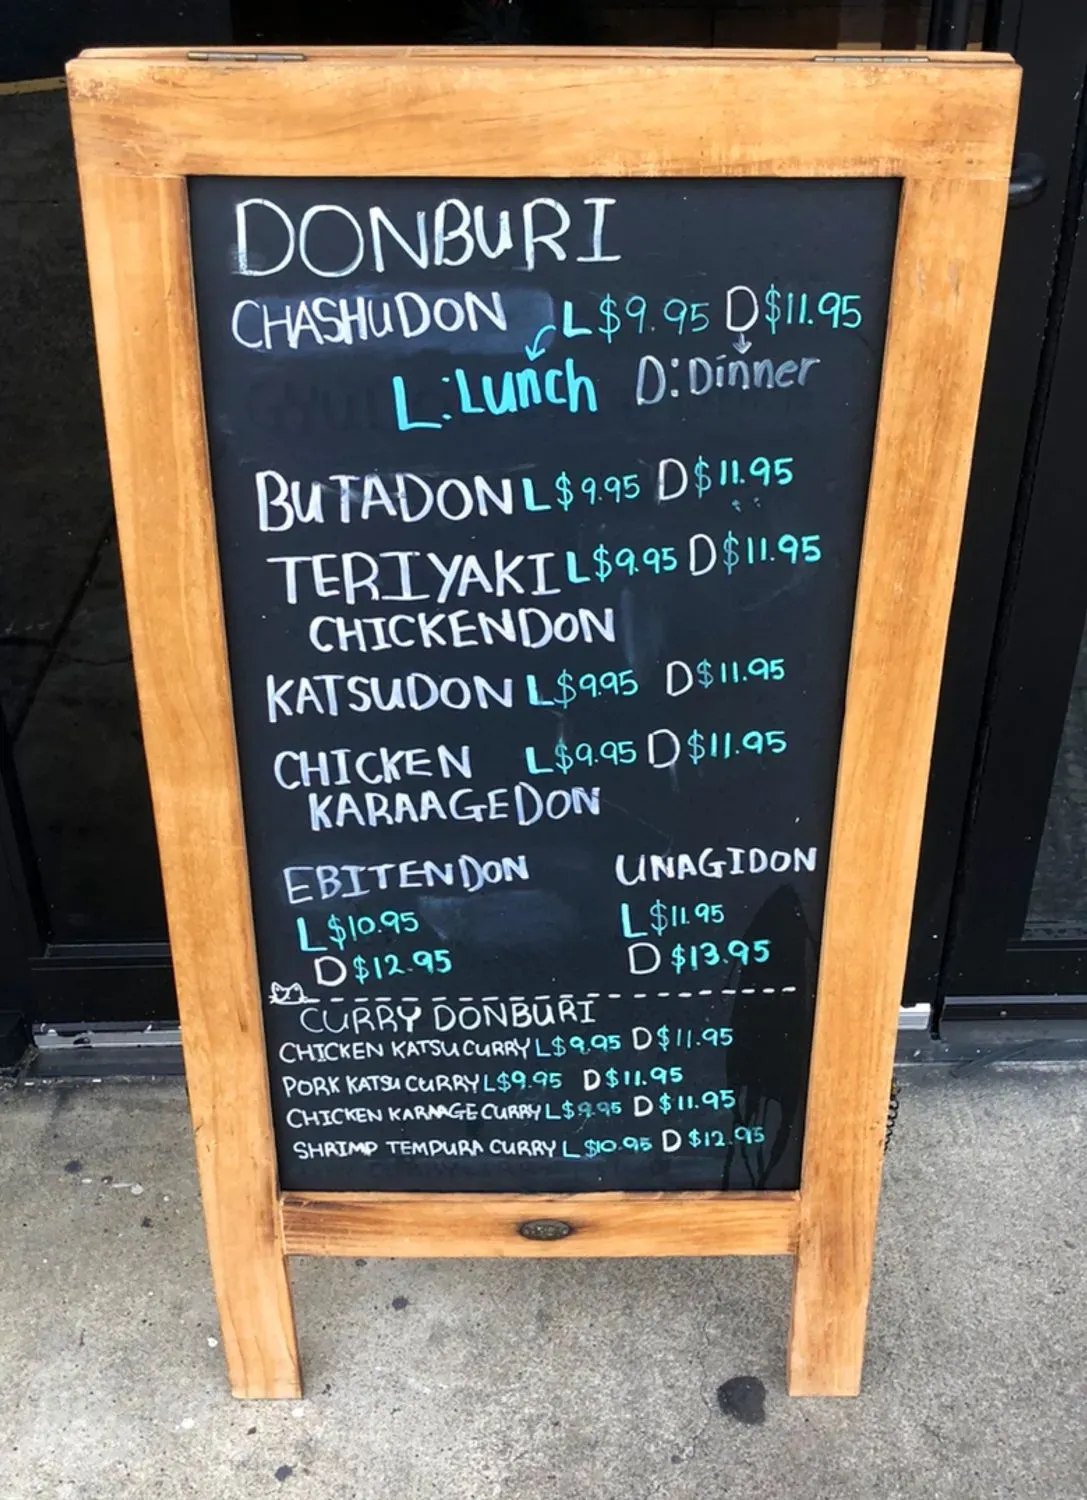 DONBURI
CHASHUDON L $9.95 D $11.95
L:Lunch D:Dinner
BUTADON L $9.95 D $11.95
TERIYAKI L $9.95 D $11.95
CHICKENDON
KATSUDON L $9.95 D $11.95
CHICKEN L $9.95 D $11.95
KARAAGEDON
EBITENDON UNAGIDON
L $10.95 L $11.95
D $12.95 D $13.95
CURRY DONBURI
CHICKEN KATSU CURRY L $9.95 D $11.95
PORK KATSU CURRY L $9.95 D $11.95
CHICKEN KARAAGE CURRY L $9.95 D $11.95
SHRIMP TEMPURA CURRY L $10.95 D $12.95